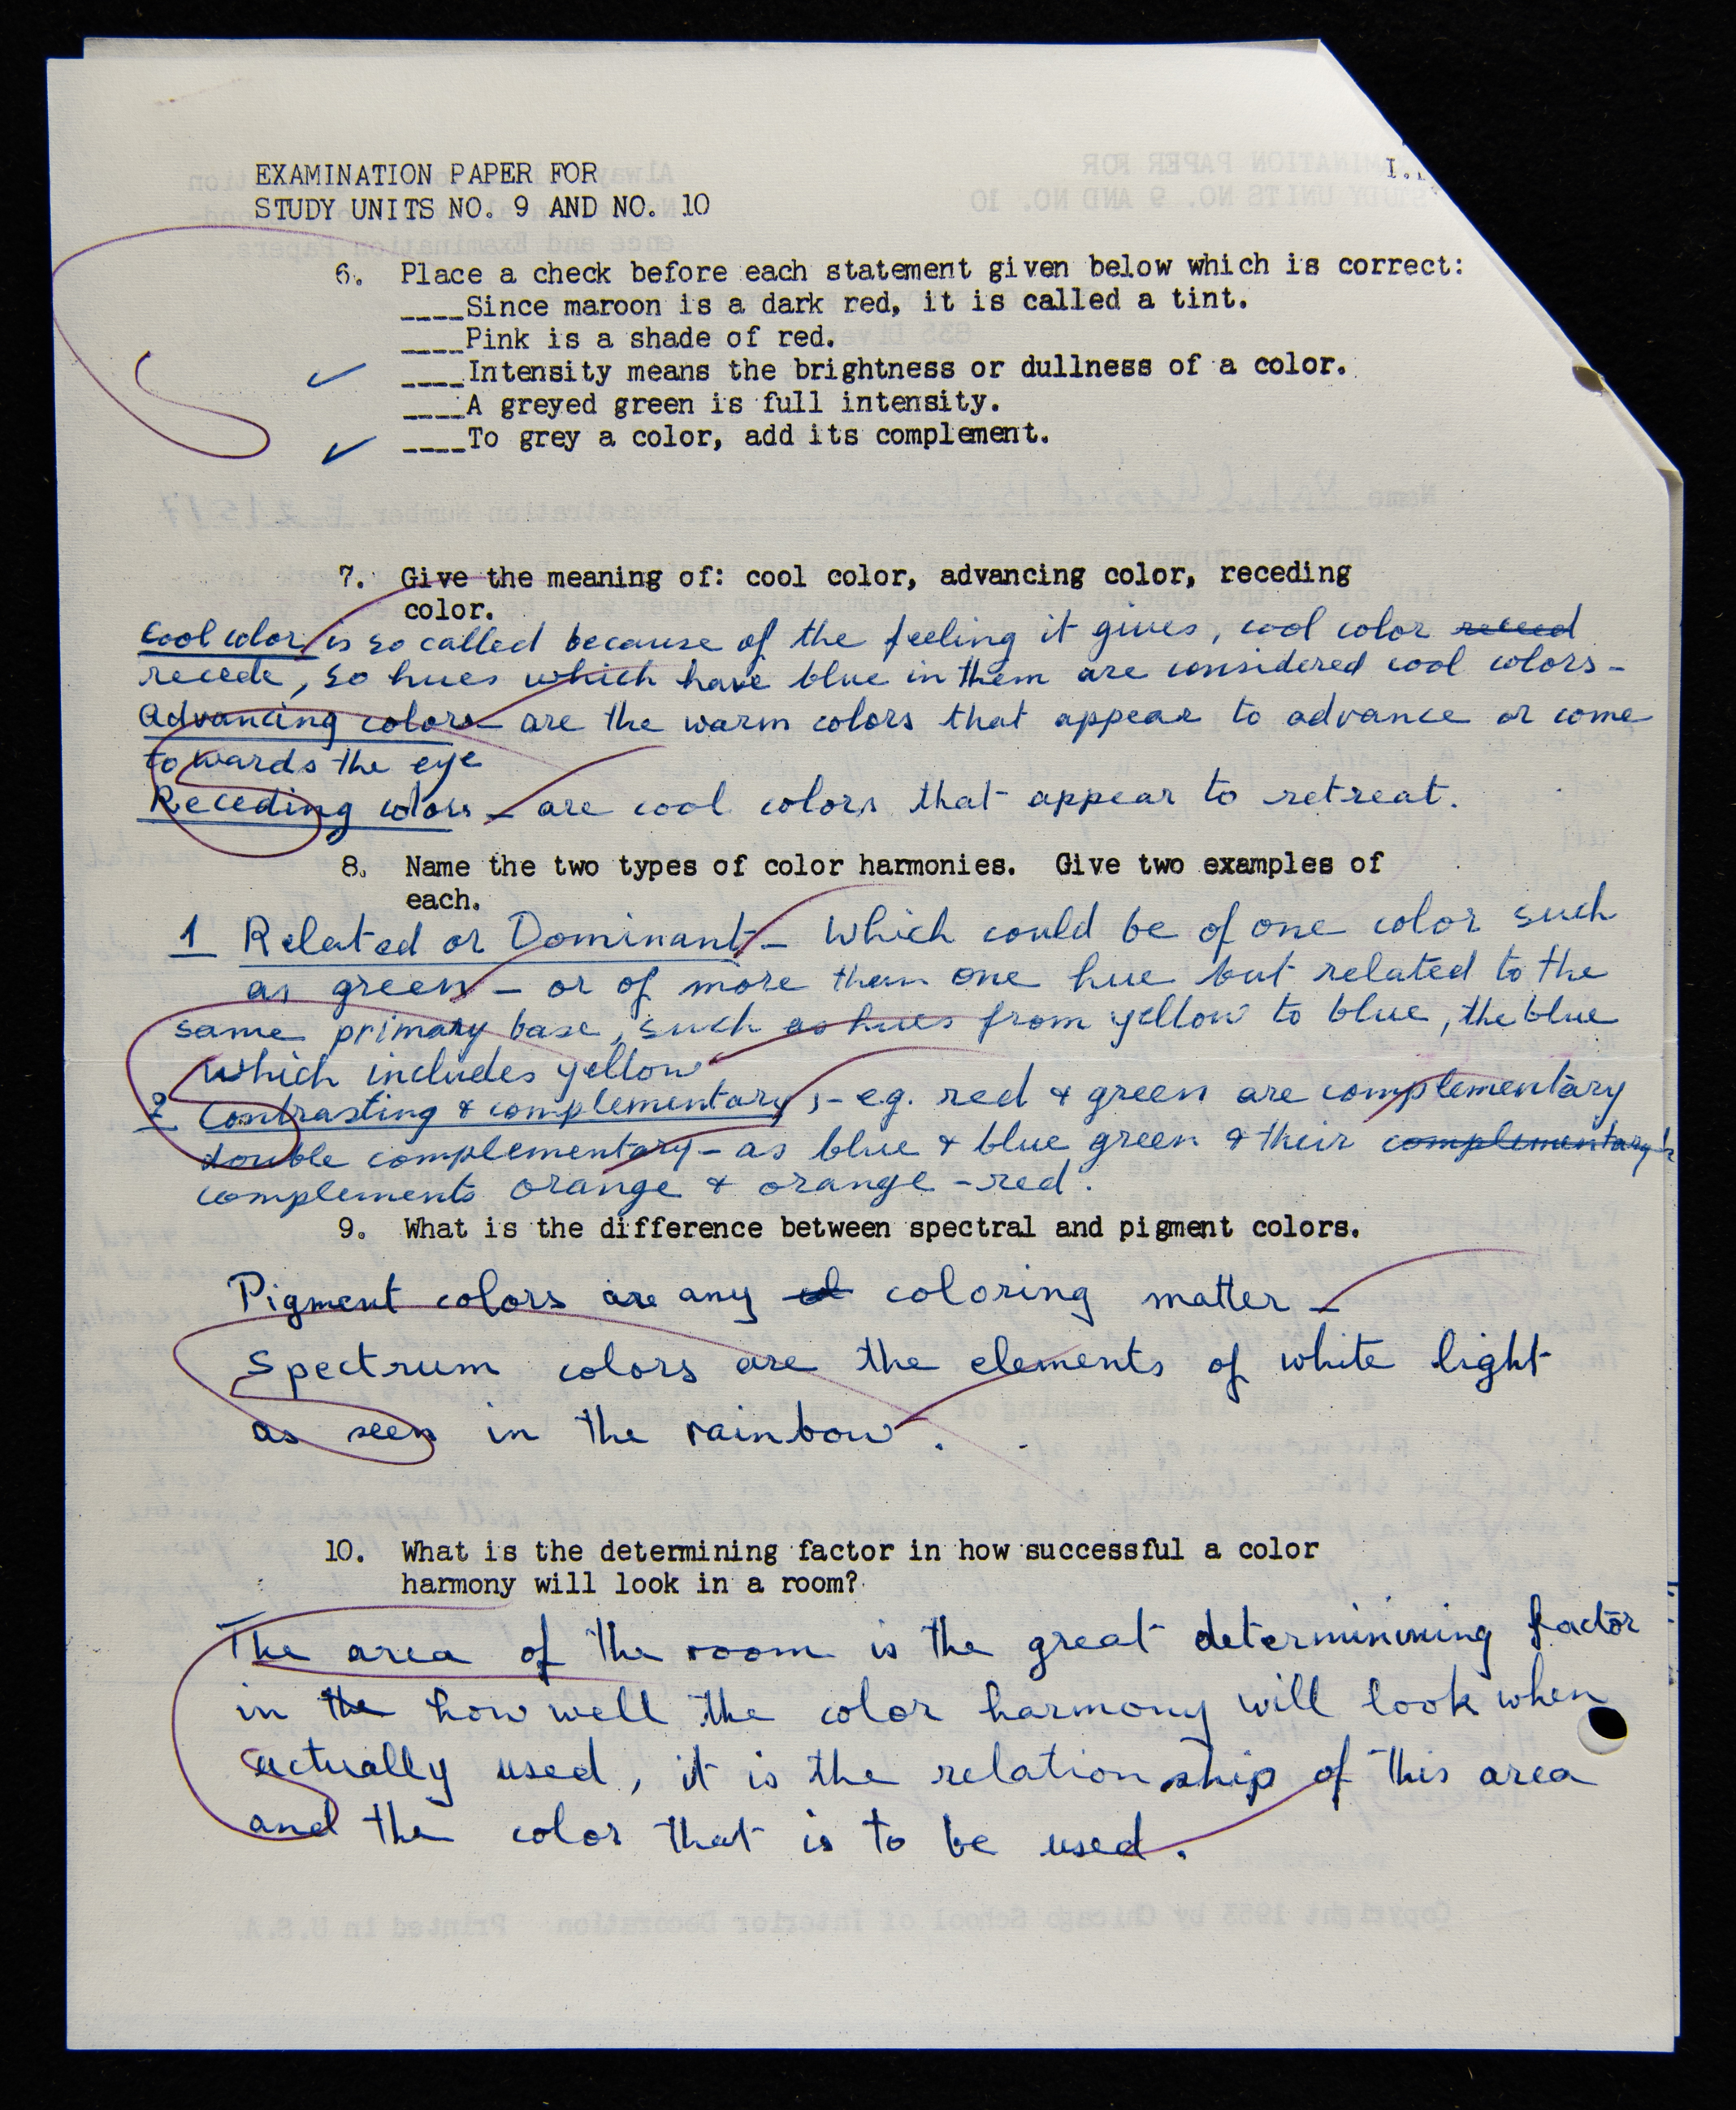 EXAMINATION PAPER FOR
STUDY UNITS NO. 9 AND NO. 10
6. Place a check before each statement given below which is correct:
____Since maroon is a dark red, it is called a tint.
____Pink is a shade of red.
✓ ____Intensity means the brightness or dullness of a color.
____A greyed green is full intensity.
✓ ____To grey a color, add its complement.
7. Give the meaning of: cool color, advancing color, receding
color.
Cool color is so called because of the feeling it gives, cool color receed
recede, so hues which have blue in them are considered cool colors -
Advancing colors - are the warm colors that appear to advance or come
towards the eye
Receding colors - are cool colors that appear to retreat.
8. Name the two types of color harmonies. Give two examples of
each.
1 Related or Dominant - Which could be of one color such
as green - or of more than one hue but related to the
same primary base, such as hues from yellow to blue, the blue
which includes yellow
2 Contrasting & complementary, - eg. red & green are complementary
double complementary - as blue & blue green & their complementary's
complements orange & orange - red.
9. What is the difference between spectral and pigment colors.
Pigment colors are any coloring matter -
Spectrum colors are the elements of white light
as seen in the rainbow.
10. What is the determining factor in how successful a color
harmony will look in a room?
The area of the room is the great determinining factor
in the how well the color harmony will look when
actually used, it is the relationship of this area
and the color that is to be used.